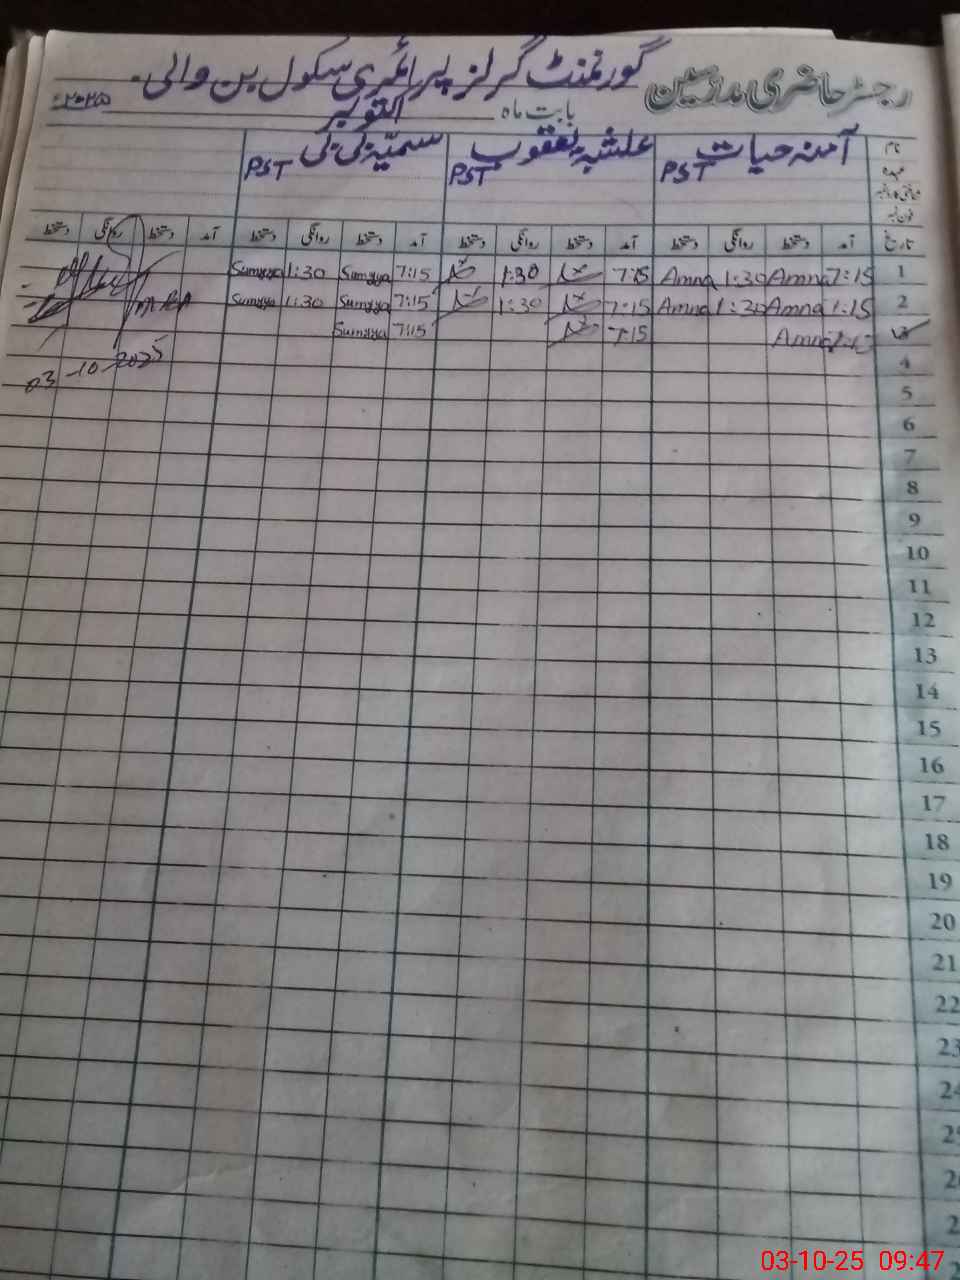 رجسٹر حاضری مدرسین گورنمنٹ گرلز پرائمری سکول بن والی۔
بابت ماہ اکتوبر ۲۰۲۵ء
نام آمنہ حیات علشبہ یعقوب سمیّہ بی بی
عہدہ PST PST PST
تاریخ آمد دستخط روانگی دستخط آمد دستخط روانگی دستخط آمد دستخط روانگی دستخط آمد دستخط روانگی دستخط
1 7:15 Amna 1:30 Amna 7:15 1:30 7:15 Sumyya 1:30 Sumyya
2 1:15 Amna 1:30 Amna 7:15 1:30 7:15 Sumyya 1:30 Sumyya
3 Amna 7:15 7:15 Sumyya
03-10-2025
4
5
6
7
8
9
10
11
12
13
14
15
16
17
18
19
20
21
22
23
03-10-25 09:47